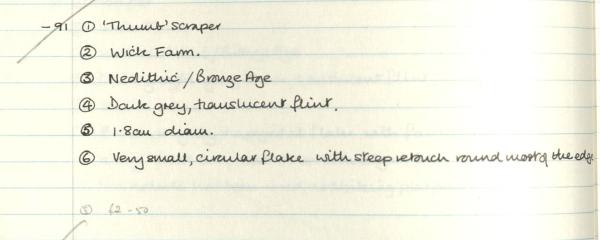 -91 ① 'Thumb' Scraper
② Wick Farm.
③ Neolithic / Bronze Age
④ Dark grey, translucent flint.
⑤ 1.8cm diam.
⑥ Very small, circular flake with steep retouch round most of the edge.
⑧ 62-50